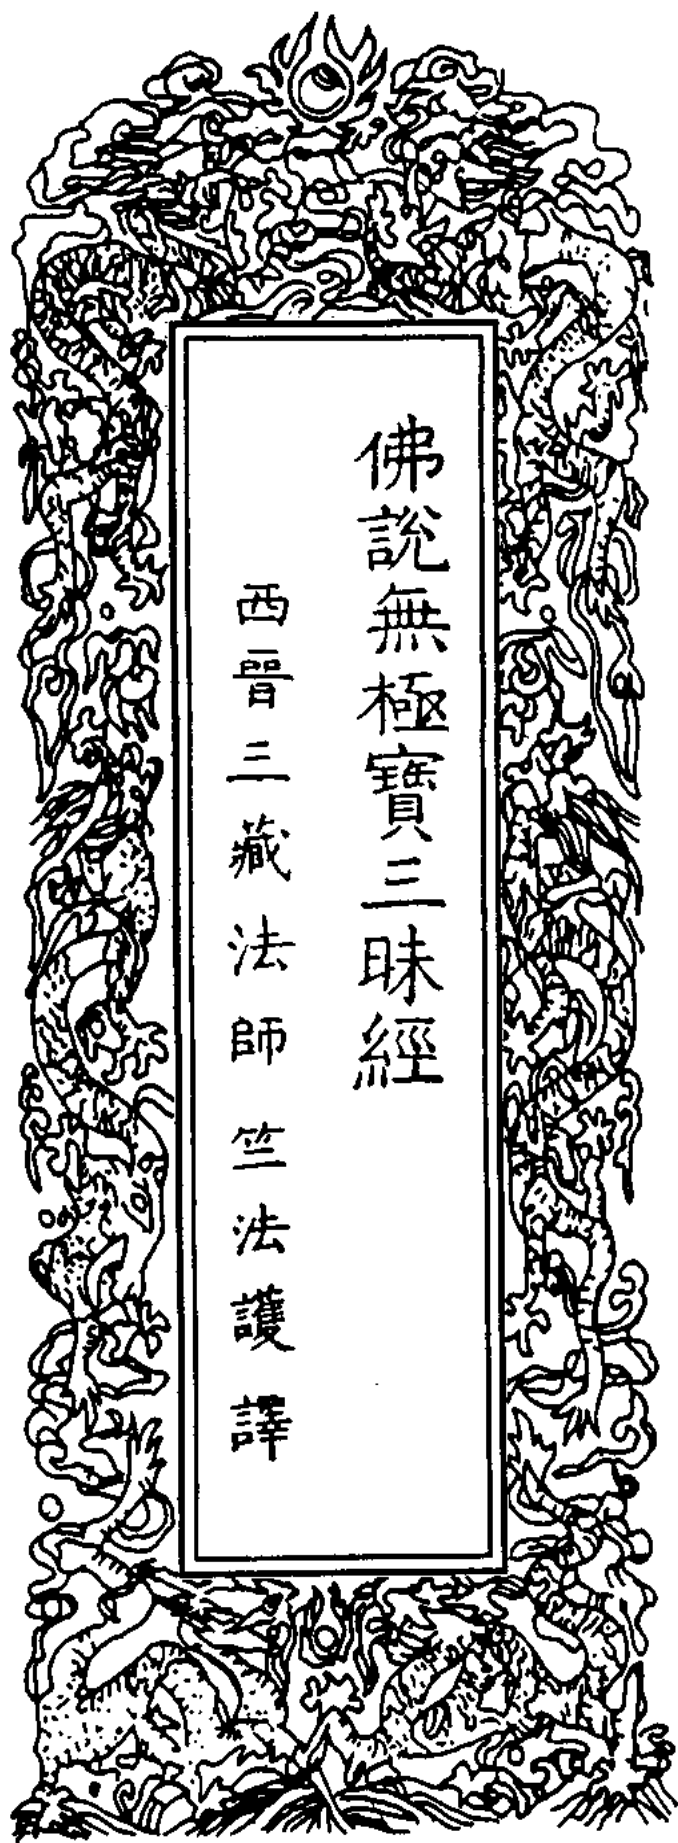 佛說無極寶三昧經
西晉三藏法師竺法護譯